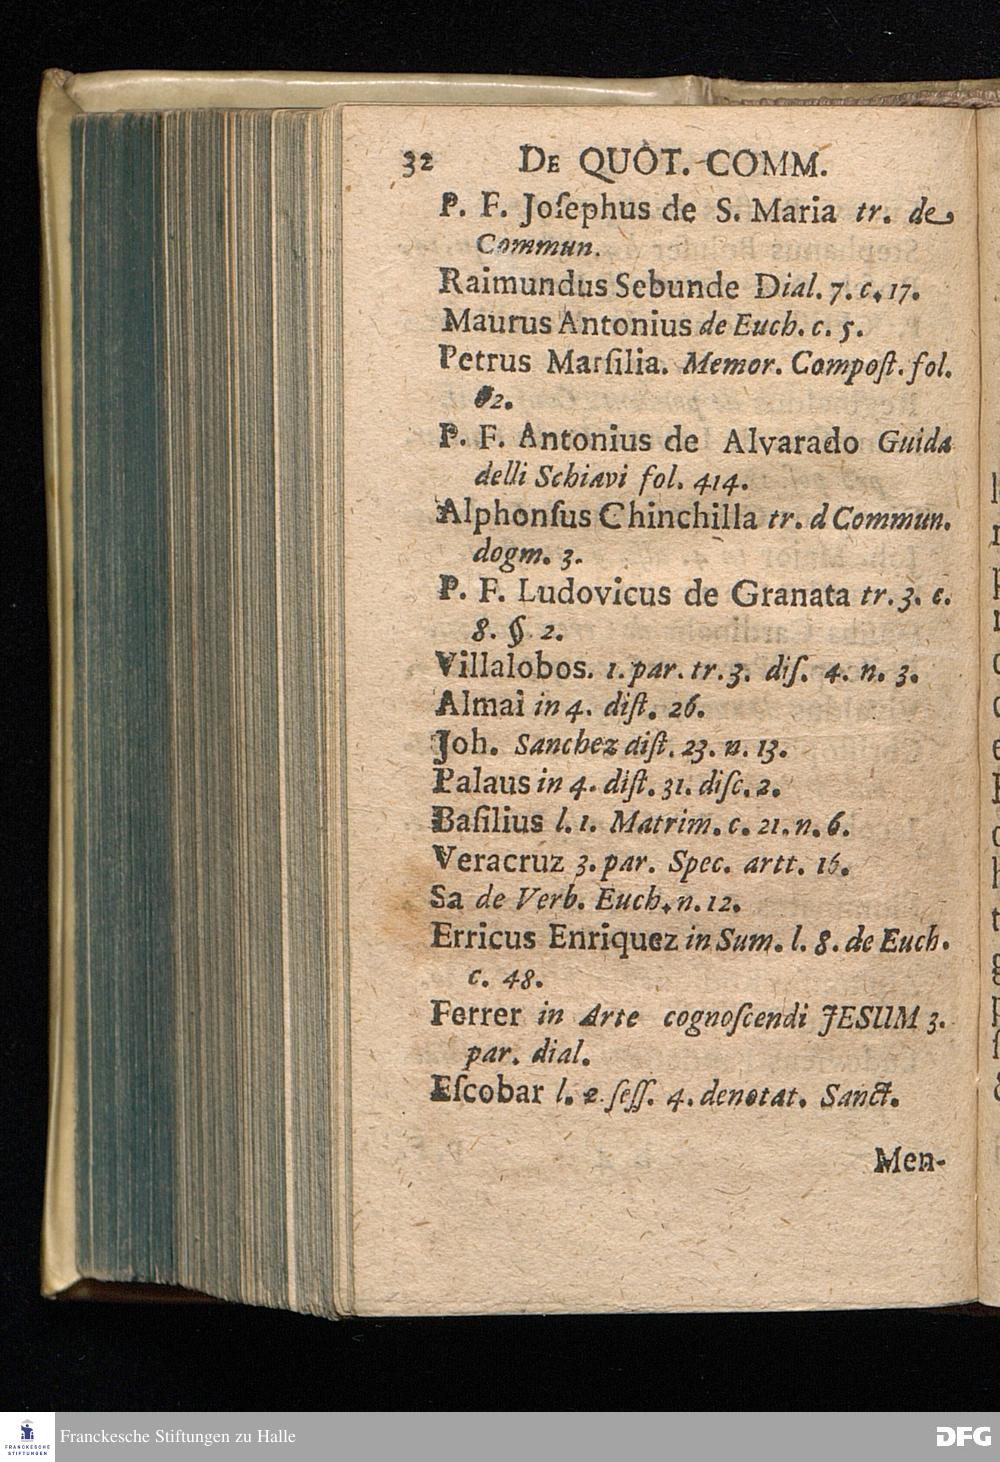 32 DE QUOT. COMM.
P. F. Joſephus de S. Maria tr. de
Commun.
Raimundus Sebunde Dial. 7. c. 17.
Maurus Antonius de Euch. c. 5.
Petrus Marſilia. Memor. Compoſt. fol.
P. F. Antonius de Alvarado Guida
delli Schiavi fol. 414.
Alphonſus Chinchilla tr. d Commun.
dogm. 3.
P. F. Ludovicus de Granata tr. 3. c.
8. §. 2.
Villalobos. 1. par. tr. 3. diſ. 4. n. 3.
Almai in 4. diſt. 26.
Joh. Sanchez diſt. 23. n. 13.
Palaus in 4. diſt. 31. diſc. 2.
Baſilius l. 1. Matrim. c. 21. n. 6.
Veracruz 3. par. Spec. artt. 16.
Sa de Verb. Euch. n. 12.
Erricus Enriquez in Sum. l. 8. de Euch.
c. 48.
Ferrer in Arte cognoſcendi JESUM 3.
par. dial.
Eſcobar l. 2 ſeſſ. 4. denotat. Sanct.
Men-
FRANCKESCHE STIFTUNGEN
Franckesche Stiftungen zu Halle
DFG